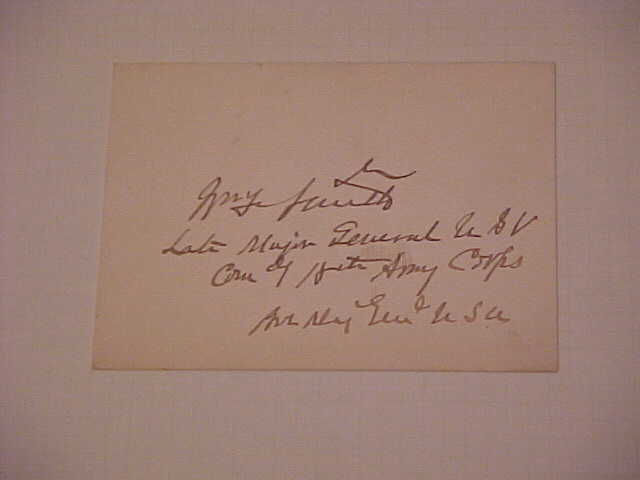 Wm F Smith
Late Major General U S V
Com'd'g 18th Army Corps
Bvt Maj Gen'l U S A